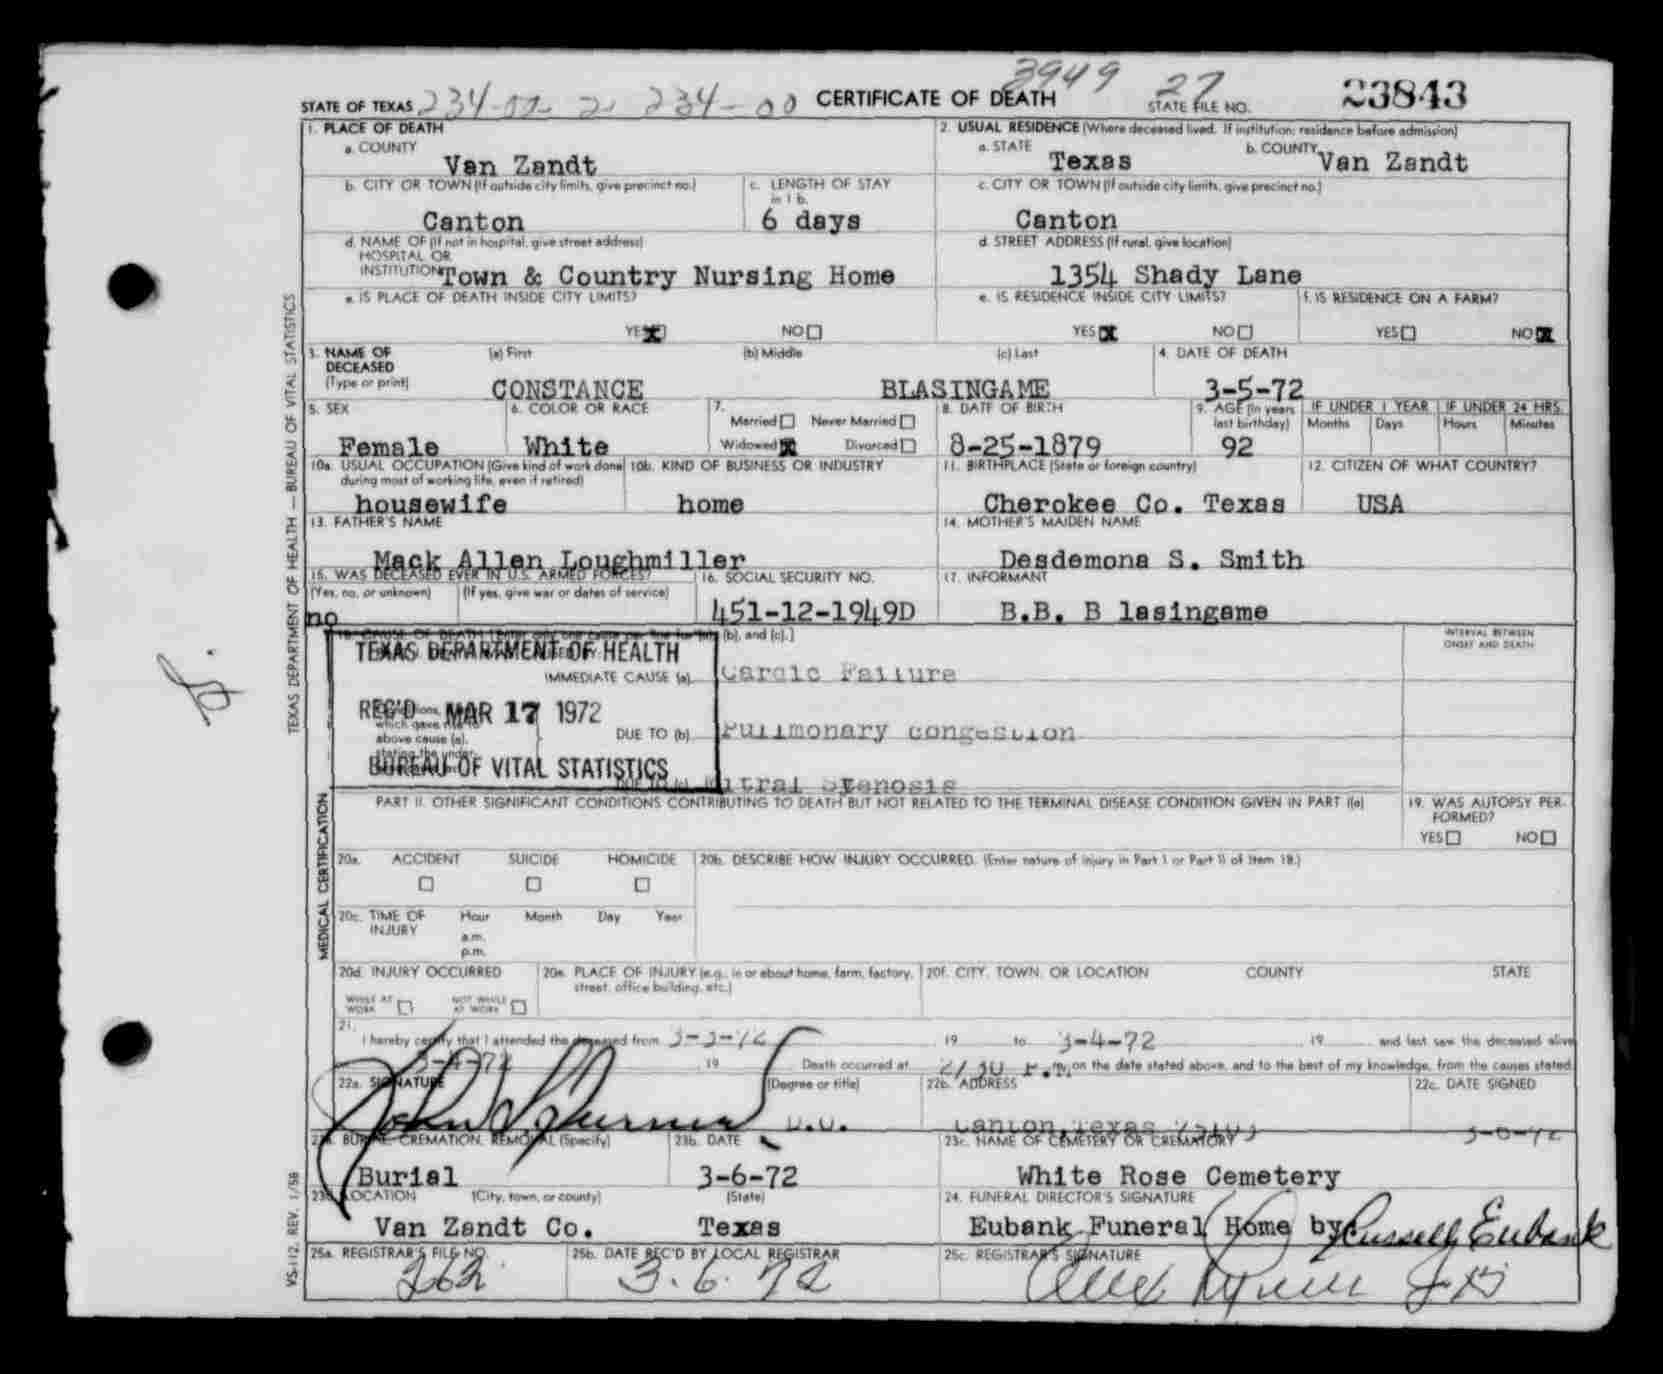 3949 27
STATE OF TEXAS 234-00 CERTIFICATE OF DEATH STATE FILE NO. 23843
1. PLACE OF DEATH 2. USUAL RESIDENCE (Where deceased lived. If institution: residence before admission)
a. COUNTY Van Zandt a. STATE Texas b. COUNTY Van Zandt
b. CITY OR TOWN (If outside city limits, give precinct no.) c. LENGTH OF STAY in 1 b. c. CITY OR TOWN (If outside city limits, give precinct no.)
Canton 6 days Canton
d. NAME OF (If not in hospital, give street address) d. STREET ADDRESS (If rural, give location)
HOSPITAL OR
INSTITUTION Town & Country Nursing Home 1354 Shady Lane
e. IS PLACE OF DEATH INSIDE CITY LIMITS? e. IS RESIDENCE INSIDE CITY LIMITS? f. IS RESIDENCE ON A FARM?
YES X NO YES X NO YES NO X
3. NAME OF DECEASED (a) First (b) Middle (c) Last 4. DATE OF DEATH
(Type or print) CONSTANCE BLASINGAME 3-5-72
5. SEX 6. COLOR OR RACE 7. Married Never Married 8. DATE OF BIRTH 9. AGE (In years last birthday) IF UNDER 1 YEAR IF UNDER 24 HRS.
Months Days Hours Minutes
Female White Widowed X Divorced 8-25-1879 92
10a. USUAL OCCUPATION (Give kind of work done during most of working life, even if retired) 10b. KIND OF BUSINESS OR INDUSTRY 11. BIRTHPLACE (State or foreign country) 12. CITIZEN OF WHAT COUNTRY?
housewife home Cherokee Co. Texas USA
13. FATHER'S NAME 14. MOTHER'S MAIDEN NAME
Mack Allen Loughmiller Desdemona S. Smith
15. WAS DECEASED EVER IN U.S. ARMED FORCES? 16. SOCIAL SECURITY NO. 17. INFORMANT
(Yes, no, or unknown) (If yes, give war or dates of service)
no 451-12-1949D B.B. B lasingame
18. CAUSE OF DEATH [Enter only one cause per line for (a), (b), and (c).] INTERVAL BETWEEN ONSET AND DEATH
TEXAS DEPARTMENT OF HEALTH
IMMEDIATE CAUSE (a) Cardic Failure
REC'D MAR 17 1972
which gave rise to
above cause (a), DUE TO (b) Pullmonary congestion
stating the under-
BUREAU OF VITAL STATISTICS
DUE TO (c) Mitral Stenosis
PART II. OTHER SIGNIFICANT CONDITIONS CONTRIBUTING TO DEATH BUT NOT RELATED TO THE TERMINAL DISEASE CONDITION GIVEN IN PART I(a) 19. WAS AUTOPSY PERFORMED?
YES NO
20a. ACCIDENT SUICIDE HOMICIDE 20b. DESCRIBE HOW INJURY OCCURRED. (Enter nature of injury in Part I or Part II of Item 18.)
20c. TIME OF INJURY Hour Month Day Year
a.m.
p.m.
20d. INJURY OCCURRED 20e. PLACE OF INJURY (e.g., in or about home, farm, factory, street, office building, etc.) 20f. CITY, TOWN, OR LOCATION COUNTY STATE
WHILE AT WORK NOT WHILE AT WORK
21. I hereby certify that I attended the deceased from 19 to 3-4-72 19 and last saw the deceased alive
3-4-72 19 Death occurred at P.M. on the date stated above, and to the best of my knowledge, from the causes stated.
22a. SIGNATURE (Degree or title) 22b. ADDRESS 22c. DATE SIGNED
John D.O. Canton, Texas
23a. BURIAL, CREMATION, REMOVAL (Specify) 23b. DATE 23c. NAME OF CEMETERY OR CREMATORY
Burial 3-6-72 White Rose Cemetery
23d. LOCATION (City, town, or county) (State) 24. FUNERAL DIRECTOR'S SIGNATURE
Van Zandt Co. Texas Eubank Funeral Home by Russell Eubank
25a. REGISTRAR'S FILE NO. 25b. DATE REC'D BY LOCAL REGISTRAR 25c. REGISTRAR'S SIGNATURE
262 3.6.72
TEXAS DEPARTMENT OF HEALTH — BUREAU OF VITAL STATISTICS
MEDICAL CERTIFICATION
VS-112, REV. 1/58